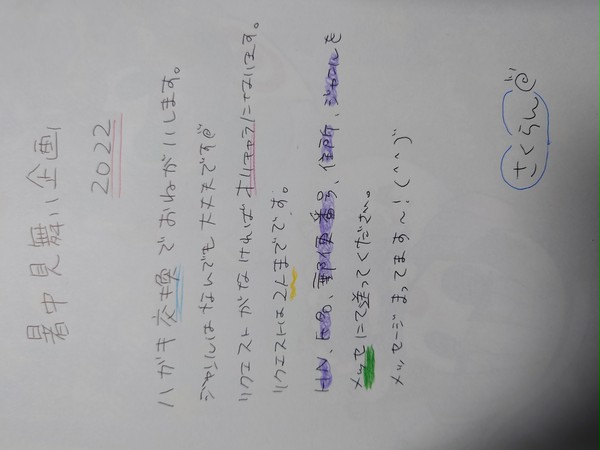 暑中見舞い企画
2022
ハガキ交換でおねがいします。
ジャンルはなんでも大丈夫です@
リクエストがなければオリキャラになります。
リクエストは2人までです。
HN、氏名、郵便番号、住所、ジャンルを
メッセにて送ってください。
メッセージまってます〜!(^^)
さくらん@